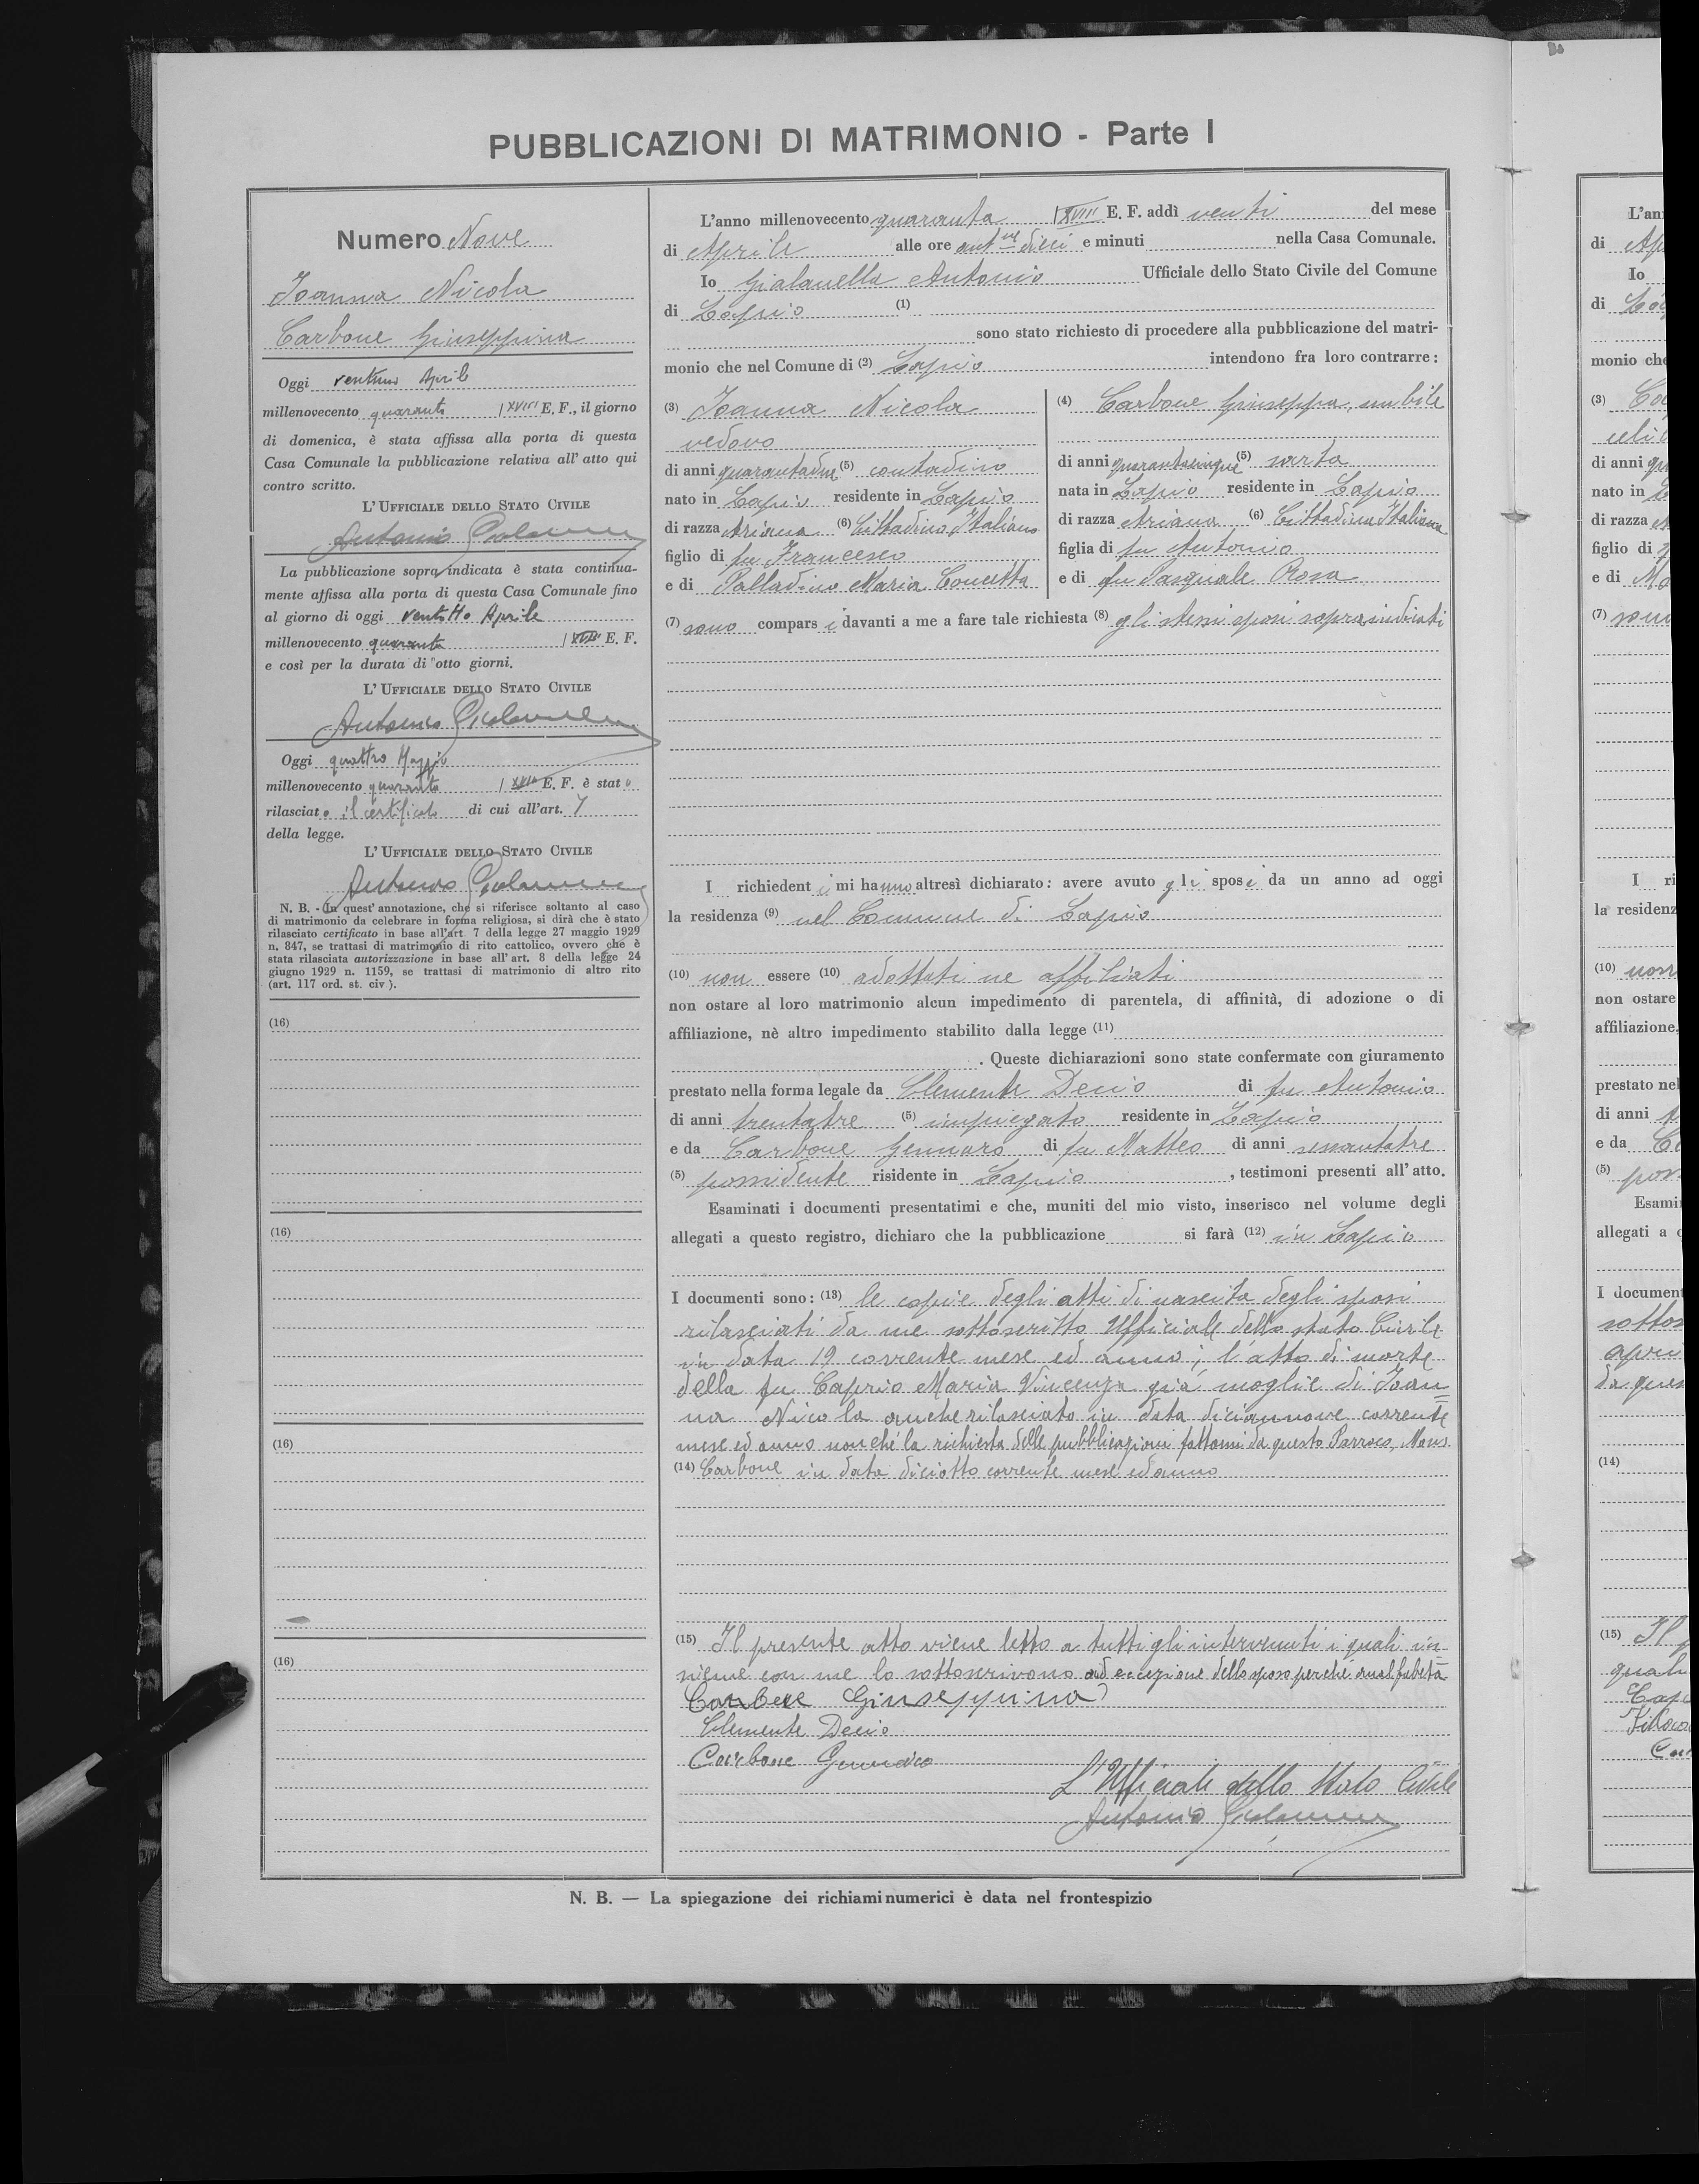 PUBBLICAZIONI DI MATRIMONIO - Parte I
Numero Nove
Ioanna Nicola
Carbone Giuseppina
Oggi ventuno Aprile
millenovecento quaranta / XVIII E. F., il giorno
di domenica, è stata affissa alla porta di questa
Casa Comunale la pubblicazione relativa all' atto qui
contro scritto.
L'UFFICIALE DELLO STATO CIVILE
Antonio Gialanella
La pubblicazione sopra indicata è stata continua-
mente affissa alla porta di questa Casa Comunale fino
al giorno di oggi ventotto Aprile
millenovecento quaranta / XVIII E. F.
e così per la durata di otto giorni.
L'UFFICIALE DELLO STATO CIVILE
Antonio Gialanella
Oggi quattro Maggio
millenovecento quaranta / XVIII E. F. è stato
rilasciato il certificato di cui all'art. 7
della legge.
L'UFFICIALE DELLO STATO CIVILE
Antonio Gialanella
N. B. - In quest' annotazione, che si riferisce soltanto al caso
di matrimonio da celebrare in forma religiosa, si dirà che è stato
rilasciato certificato in base all'art. 7 della legge 27 maggio 1929
n. 847, se trattasi di matrimonio di rito cattolico, ovvero che è
stata rilasciata autorizzazione in base all' art. 8 della legge 24
giugno 1929 n. 1159, se trattasi di matrimonio di altro rito
(art. 117 ord. st. civ ).
(16)
(16)
(16)
(16)
L'anno millenovecento quaranta / XVIII E. F. addì venti del mese
di Aprile alle ore ant.ne dieci e minuti nella Casa Comunale.
Io Gialanella Antonio Ufficiale dello Stato Civile del Comune
di Lapio (1)
sono stato richiesto di procedere alla pubblicazione del matri-
monio che nel Comune di (2) Lapio intendono fra loro contrarre:
(3) Ioanna Nicola
vedovo
di anni quarantadue (5) contadino
nato in Lapio residente in Lapio
di razza Ariana (6) Cittadino Italiano
figlio di fu Francesco
e di Palladino Maria Concetta
(4) Carbone Giuseppa, nubile
di anni quarantacinque (5) sarta
nata in Lapio residente in Lapio
di razza Ariana (6) Cittadina Italiana
figlia di fu Antonio
e di fu Pasquale Rosa
(7) sono comparsi davanti a me a fare tale richiesta (8) gli stessi sposi sopraindicati
I richiedenti mi hanno altresì dichiarato: avere avuto gli sposi da un anno ad oggi
la residenza (9) nel Comune di Lapio
(10) non essere (10) adottati ne affiliati
non ostare al loro matrimonio alcun impedimento di parentela, di affinità, di adozione o di
affiliazione, nè altro impedimento stabilito dalla legge (11)
. Queste dichiarazioni sono state confermate con giuramento
prestato nella forma legale da Clemente Decio di fu Antonio
di anni trentatre (5) impiegato residente in Lapio
e da Carbone Gennaro di fu Matteo di anni sessantatre
(5) possidente risidente in Lapio , testimoni presenti all' atto.
Esaminati i documenti presentatimi e che, muniti del mio visto, inserisco nel volume degli
allegati a questo registro, dichiaro che la pubblicazione si farà (12) in Lapio
I documenti sono: (13) le copie degli atti di nascita degli sposi
rilasciati da me sottoscritto Ufficiale dello stato Civile
in data 19 corrente mese ed anno; l'atto di morte
della fu Caprio Maria Vincenza già moglie di Ioan=
na Nicola anche rilasciato in data diciannove corrente
mese ed anno nonché la richiesta delle pubblicazioni fattami da questo Parroco, Mons.
(14) Carbone in data diciotto corrente mese ed anno
(15) Il presente atto viene letto a tutti gli intervenuti i quali in=
sieme con me lo sottoscrivono ad eccezione dello sposo perché analfabeta
Carbone Giuseppina
Clemente Decio
Carbone Gennaro
L'Ufficiale dello Stato Civile
Antonio Gialanella
N. B. — La spiegazione dei richiami numerici è data nel frontespizio
L'an
di Ap
Io
di
monio che
(3)
celi
di anni
nato in
di razza
figlio di
e di
(7) sono
I ri
la residenz
(10) non
non ostare
affiliazione,
prestato nel
di anni
e da
(5) pos
Esami
allegati a
I document
sottos
da ques
(14)
(15) Il
quali